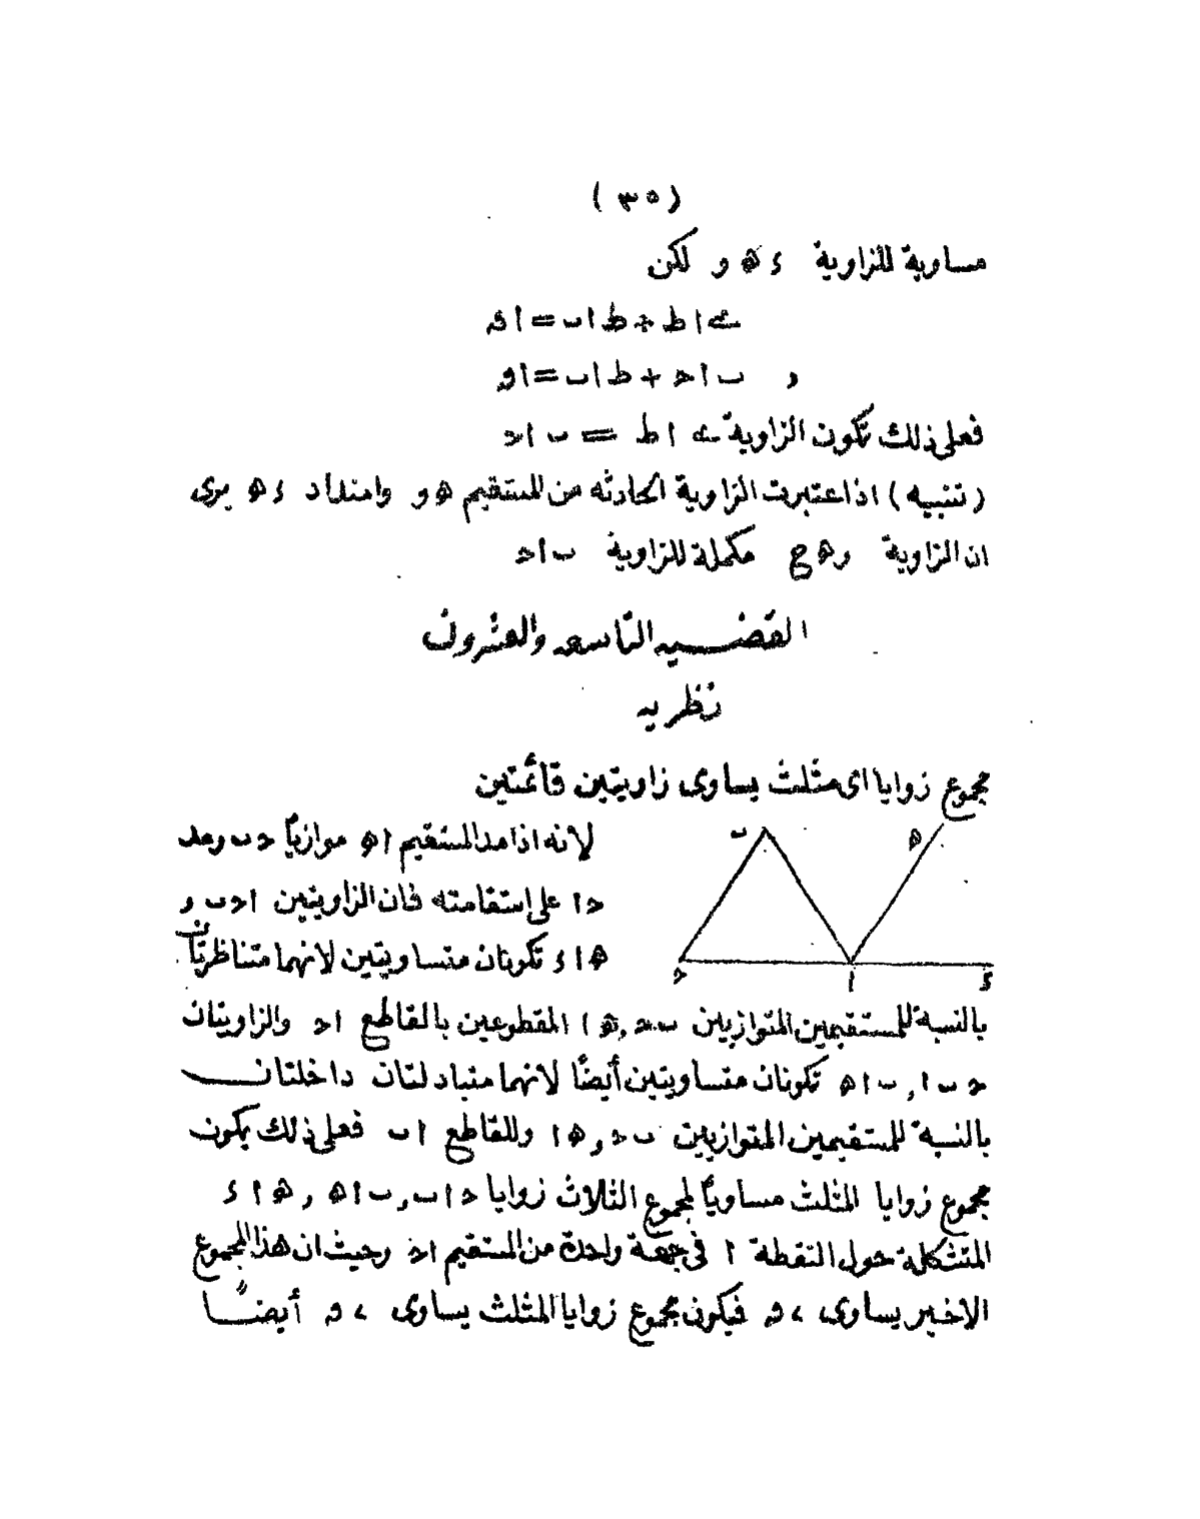 ( ٣٥ )
مساوية للزاوية ء ه و لكن
ے ا ط + ط ا ب = ا ق
و ب ا ح + ط ا ب = ا ق
فعلى ذلك تكون الزاوية ے ا ط = ب ا ح
( تنبيه ) اذا اعتبرت الزاوية الحادثه من المستقيم ه و وامتداد ء ه يرى
ان الزاوية و ه ح مكملة للزاوية ب ا ح
القضيه التاسعه والعشرون
نظريه
مجموع زوايا اى مثلث يساوى زاويتين قائمتين
لانه اذا مد المستقيم ا ه موازيًا ح ب ومد
ح ا على استقامته فان الزاويتين ا ح ب و
ه ا ء تكونان متساويتين لانهما متناظرتان
ب ه ح ا ء
بالنسبة للمستقيمين المتوازيين ب ح , ه ا المقطوعين بالقاطع ا ح والزاويتان
ح ب ا , ب ا ه تكونان متساويتين أيضًا لانهما متبادلتان داخلتان
بالنسبة للمستقيمين المتوازيين ب ح , ه ا وللقاطع ا ب فعلى ذلك يكون
مجموع زوايا المثلث مساويًا لمجموع الثلاث زوايا ح ا ب , ب ا ه , ه ا ء
المتشكلة حول النقطة ا فى جهة واحدة من المستقيم ا ح وحيث ان هذا المجموع
الاخير يساوى ٢ ق فيكون مجموع زوايا المثلث يساوى ٢ ق أيضًا